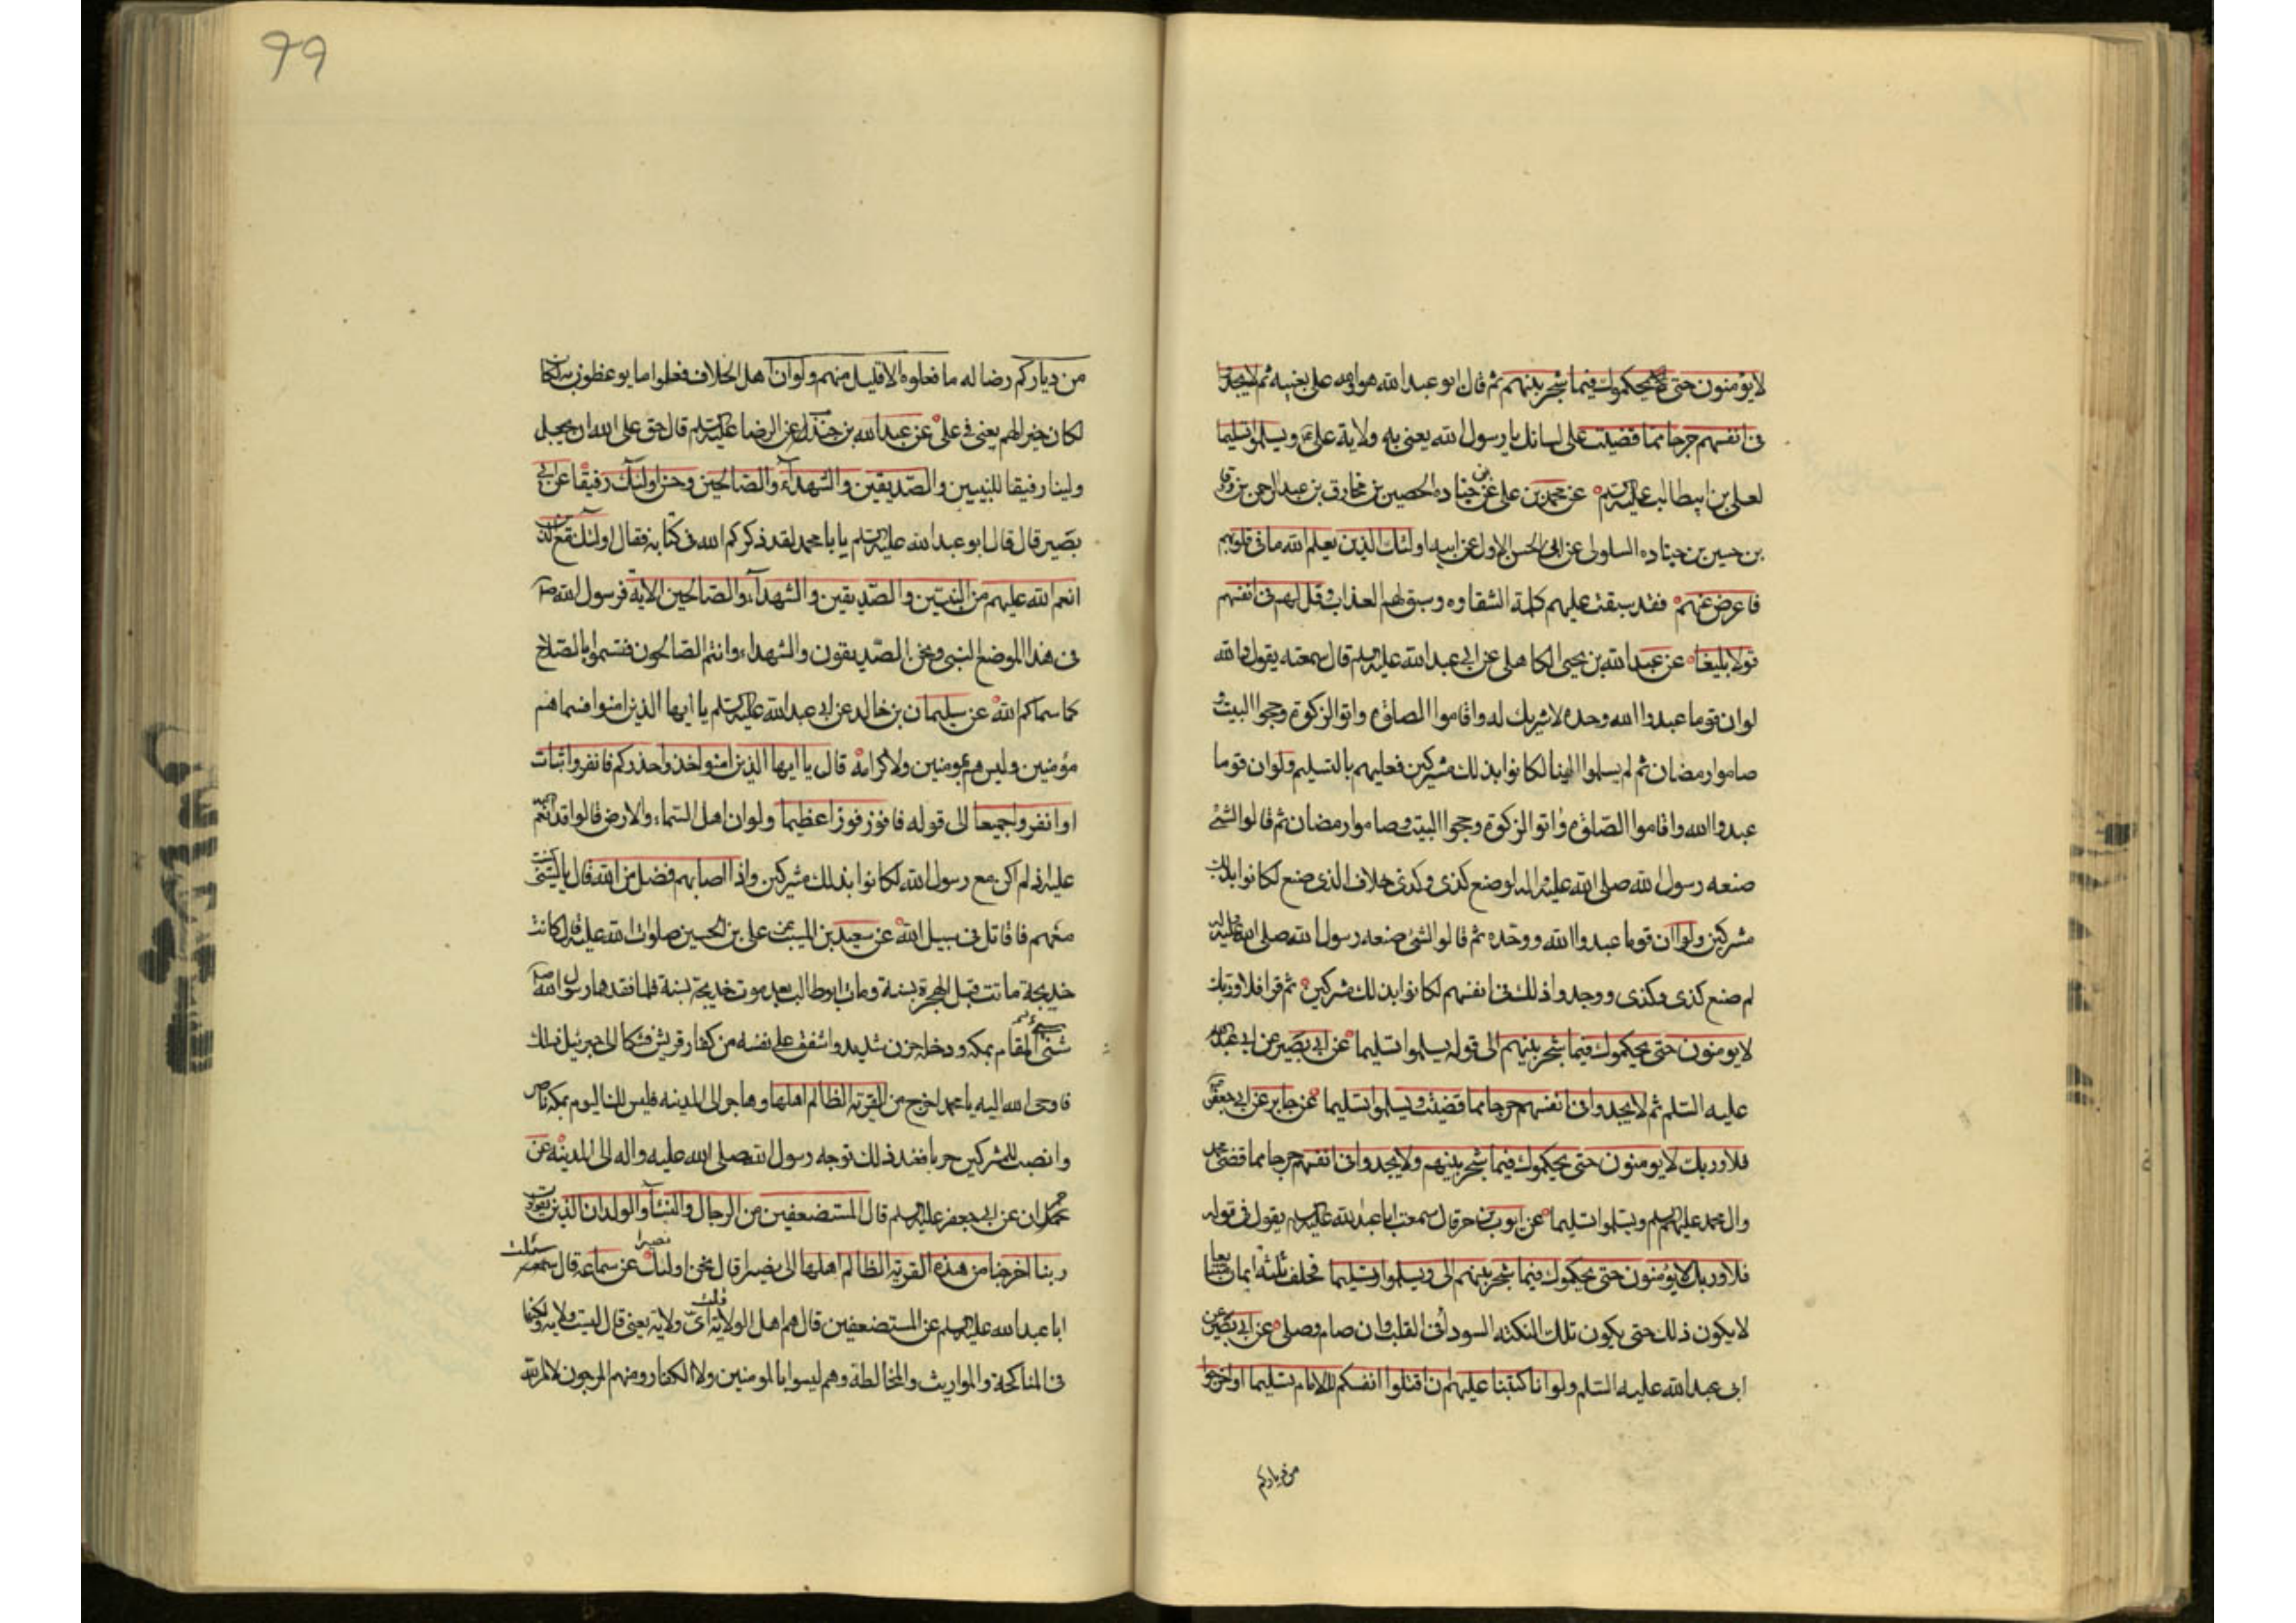 لايؤمنون حتى يحكموك فيما شجر بينهم ثم قال ابو عبد الله هو والله على بعينه ثم لايجدوا
فى انفسهم حرجا مما قضيت على لسانك يا رسول الله يعنى به ولاية على ع ويسلموا تسليما
لعلى بن ابيطالب عليه السلم عن محمد بن على عن جناده الحصين بن مخارق بن عبد الرحمن بن ورقا
بن حسين بن جناده السلولى عن ابى الحسن الاول عن ابيه اولئك الذين يعلم الله ما فى قلوبهم
فاعرض عنهم فقد سبقت عليهم كلمة الشقاوه وسبق لهم العذاب وقل لهم فى انفسهم
قولا بليغا عن عبد الله بن يحيى الكاهلى عن ابى عبد الله عليه السلم قال سمعته يقول والله
لوان قوما عبدوا الله وحده لاشريك له واقاموا الصلوة واتوا الزكوة وحجوا البيت
صاموا رمضان ثم لم يسلموا الينا لكانوا بذلك مشركين فعليهم بالتسليم ولوان قوما
عبدوا الله واقاموا الصلوة واتوا الزكوة وحجوا البيت وصاموا رمضان ثم قالوا الشئ
صنعه رسول الله صلى الله عليه واله لو صنع كذى وكذى خلاف الذى صنع لكانوا بذلك
مشركين ولوان قوما عبدوا الله ووحده ثم قالوا الشئ صنعه رسول الله صلى الله عليه واله
لم صنع كذى وكذى ووجدوا ذلك فى انفسهم لكانوا بذلك مشركين ثم قرا فلا وربك
لايومنون حتى يحكموك فيما شجر بينهم الى قوله يسلموا تسليما عن ابى بصير عن ابى عبد الله
عليه السلم ثم لايجدوا فى انفسهم حرجا مما قضيت ويسلموا تسليما عن جابر عن ابى جعفر
فلا وربك لايومنون حتى يحكموك فيما شجر بينهم ولايجدوا فى انفسهم حرجا مما قضى محمد
وال محمد عليهم السلم ويسلموا تسليما عن ايوب بن حر قال سمعت ابا عبد الله عليه السلم يقول فى قوله
فلا وربك لايؤمنون حتى يحكموك فيما شجر بينهم الى ويسلموا تسليما فحلف ثلثة ايمان
لايكون ذلك حتى يكون تلك النكته السودا فى القلب وان صام وصلى عن ابى بصير عن
ابى عبد الله عليه السلم ولو انا كتبنا عليهم ان اقتلوا انفسكم للامام تسليما او اخرجوا
من دياركم
99
من دياركم رضا له ما فعلوه الا قليل منهم ولوان اهل الخلاف فعلوا ما يوعظون به لكان
لكان خيرا لهم يعنى فى على عن عبد الله بن جندل عن الرضا عليه السلم قال حق على الله ان يجعل
ولينا رفيقا للنبيين والصديقين والشهداء والصالحين وحسن اولئك رفيقا عن ابى
بصير قال قال ابو عبد الله عليه السلم يا با محمد لقد ذكركم الله فى كتابه فقال اولئك مع الذين
انعم الله عليهم من النبيين والصديقين والشهداء والصالحين الاية فرسول الله ص
فى هذا الموضع النبى ونحن الصديقون والشهداء وانتم الصالحون فتسموا بالصلاح
كما سماكم الله عن سليمان بن خالد عن ابى عبد الله عليه السلم يا ايها الذين امنوا فسماهم
مؤمنين وليس هم بمومنين ولا كرامة قال يا ايها الذين امنوا خذوا حذركم فانفروا ثبات
او انفروا جميعا الى قوله فافوز فوزا عظيما ولوان اهل السماء والارض قالوا قد انعم الله
على اذ لم اكن مع رسول الله لكانوا بذلك مشركين واذا اصابهم فضل من الله قال يا ليتنى كنت
معهم فاقاتل فى سبيل الله عن سعيد بن المسيب عن على بن الحسين صلوات الله عليه قال كانت
خديجة ماتت قبل الهجرة بسنة ومات ابوطالب بعد موت خديجة بسنة فلما فقدهما رسول الله ص
شنى المقام بمكه ودخله حزن شديد واشفق على نفسه من كفار قريش فشكا الى جبرئيل ذلك
فاوحى الله اليه يا محمد اخرج من القرية الظالم اهلها وهاجر الى المدينه فليس لك اليوم بمكه ناصر
وانصب للمشركين حربا فعند ذلك توجه رسول الله صلى الله عليه واله الى المدينه عن
حمران عن ابى جعفر عليه السلم قال المستضعفين من الرجال والنساء والولدان الذين يقولون
ربنا اخرجنا من هذه القرية الظالم اهلها الى نصيرا قال نحن اولئك عن سماعه قال سئلت
ابا عبد الله عليه السلم عن المستضعفين قال هم اهل الولاية قلت اى ولاية يعنى قال ليست ولاية ولكنها
فى المناكحة والمواريث والمخالطة وهم ليسوا بالمومنين ولا الكفار ومنهم المرجون لامر الله